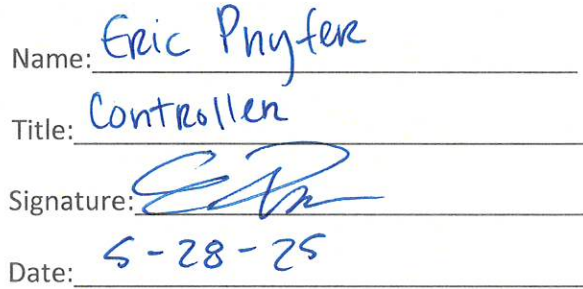 Name: Eric Phyfer
Title: Controller
Signature:
Date: 5-28-25